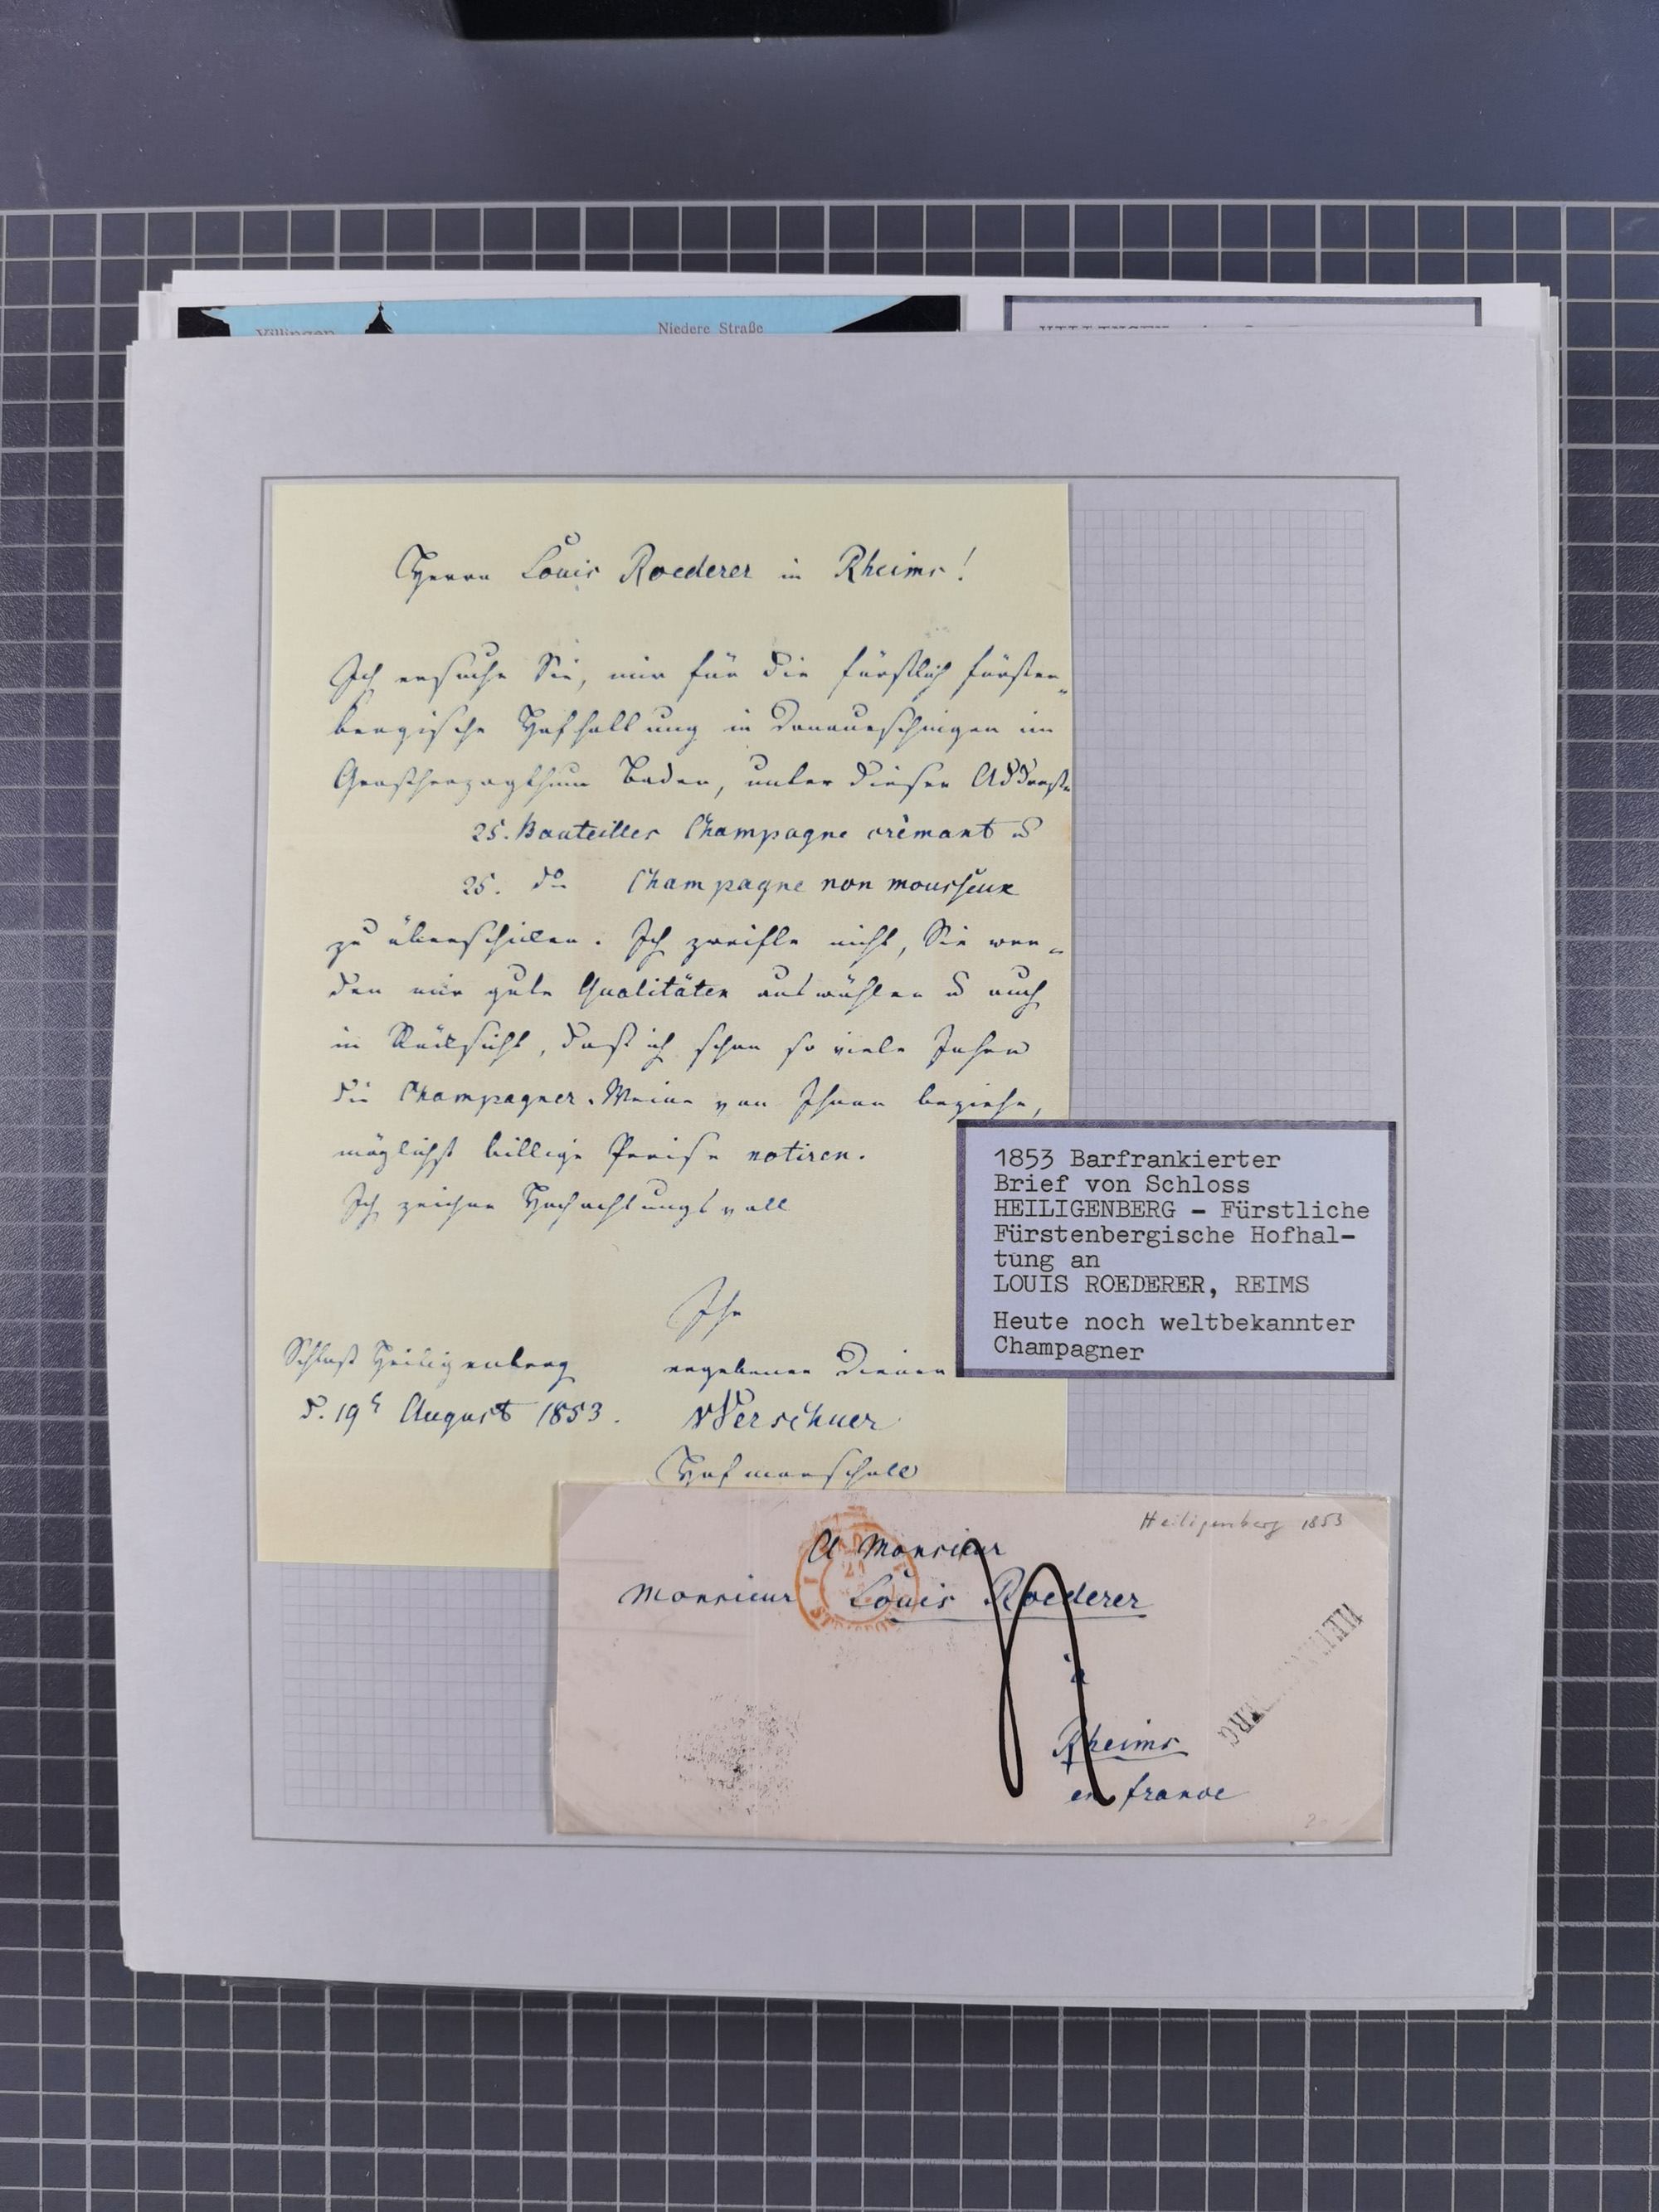 Villingen
Niedere Straße
Herrn Louis Roederer in Rheims!
Ich ersuche Sie, mir für die fürstlich fürsten-
bergische Hofhaltung in Donaueschingen im
Großherzogthum Baden, unter dieser Addresse
25. Bouteilles Champagne crèmant &
25. do Champagne non mousseux
zu überschicken. Ich zweifle nicht, Sie wer-
den mir gute Qualitäten auswählen & auch
in Rücksicht, daß ich schon so viele Jahre
die Champagner-Weine von Ihnen beziehe,
möglichst billige Preise notiren.
Ich zeichne Hochachtungsvoll
Ihr
ergebener Diener
vVerschuer
Hofmarschall
Schloß Heiligenberg
d. 19t August 1853.
1853 Barfrankierter
Brief von Schloss
HEILIGENBERG - Fürstliche
Fürstenbergische Hofhal-
tung an
LOUIS ROEDERER, REIMS
Heute noch weltbekannter
Champagner
Heiligenberg 1853
A Monsieur
Monsieur Louis Roederer
à
Rheims
en france